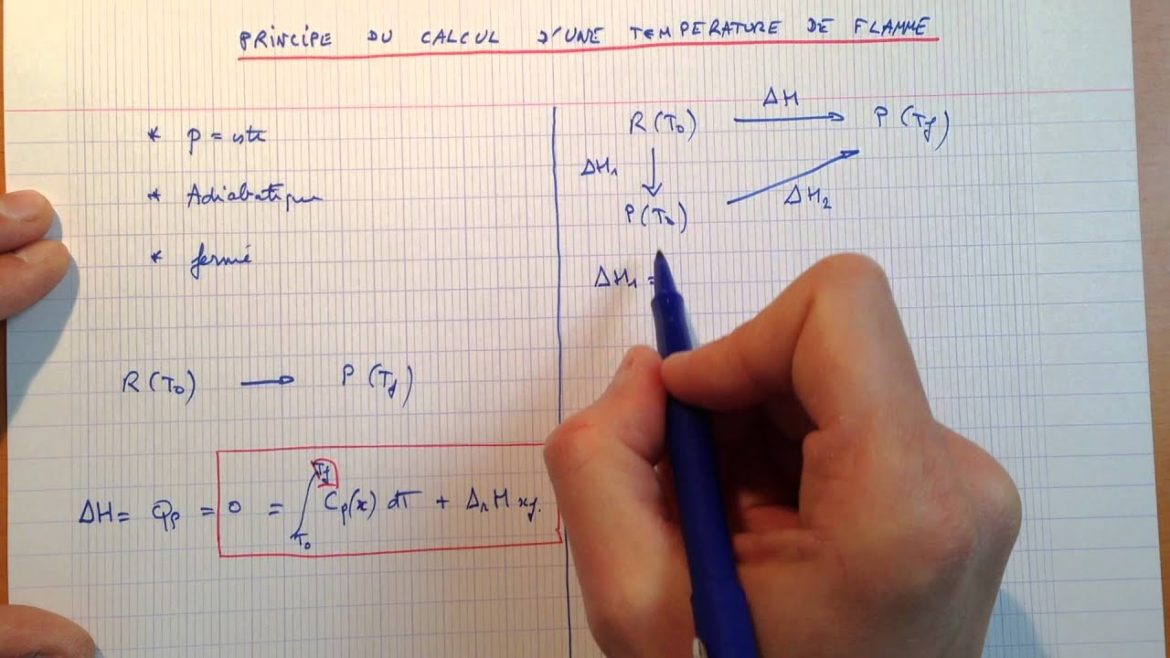 PRINCIPE DU CALCUL D'UNE TEMPERATURE DE FLAMME
* p = cste
* Adiabatique
* fermé
R(T₀) → P(T_f)
ΔH = Qp = 0 = ∫_{T₀}^{T_f} Cp(x) dT + Δ_rH x_f.
R(T₀) ΔH → P(T_f)
ΔH₁ ↓
P(T₀) → ΔH₂
ΔH₁ =